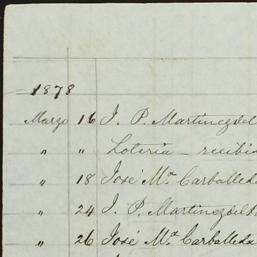 1878
Marzo 16 J. P. Martinez del
" " Loteria - recibi
" 18 José Ma. Carballeda
" 24 J. P. Martinez del
" 26 José Ma. Carballeda